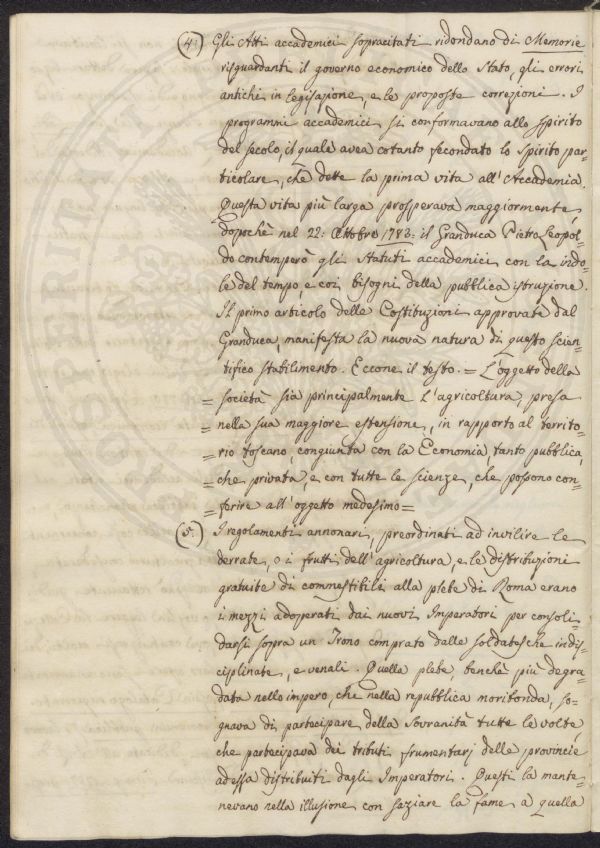 4. Gli Atti accademici sopracitati ridondano di Memorie
risguardanti il governo economico dello Stato, gli errori
antichi in legislazione, e le proposte correzioni. I
programmi accademici si conformavano allo spirito
del secolo, il quale avea cotanto fecondato lo spirito par=
ticolare, che dette la prima vita all'Accademia.
Questa vita più larga prosperava maggiormente,
dopochè nel 22: Ottobre 1783: il Granduca Pietro Leopol=
do contemperò gli Statuti accademici con la indo=
le del tempo, e coi bisogni della pubblica istruzione.
Il primo articolo delle Costituzioni approvate dal
Granduca, manifesta la nuova natura di questo scien=
tifico stabilimento. Eccone il testo. = L'oggetto della
= società sia principalmente l'agricoltura, presa
= nella sua maggiore estensione, in rapporto al territo=
= rio toscano, congiunta con la Economia, tanto pubblica,
= che privata, e con tutte le scienze, che possono con=
= ferire all'oggetto medesimo =
5. I regolamenti annonari, preordinati ad invilire le
derrate, o i frutti dell'agricoltura, e le distribuzioni
gratuite di commestibili alla plebe di Roma erano
i mezzi adoperati dai nuovi Imperatori per consoli=
darsi sopra un Trono comprato dalle soldatesche indi=
sciplinate, e venali. Quella plebe, benchè più degra=
data nello impero, che nella repubblica moribonda, so=
gnava di partecipare della Sovranità tutte le volte,
che partecipava dei tributi frumentarj delle provincie
ad essa distribuiti dagli Imperatori. Questi la mante=
nevano nella illusione con saziare la fame a quella